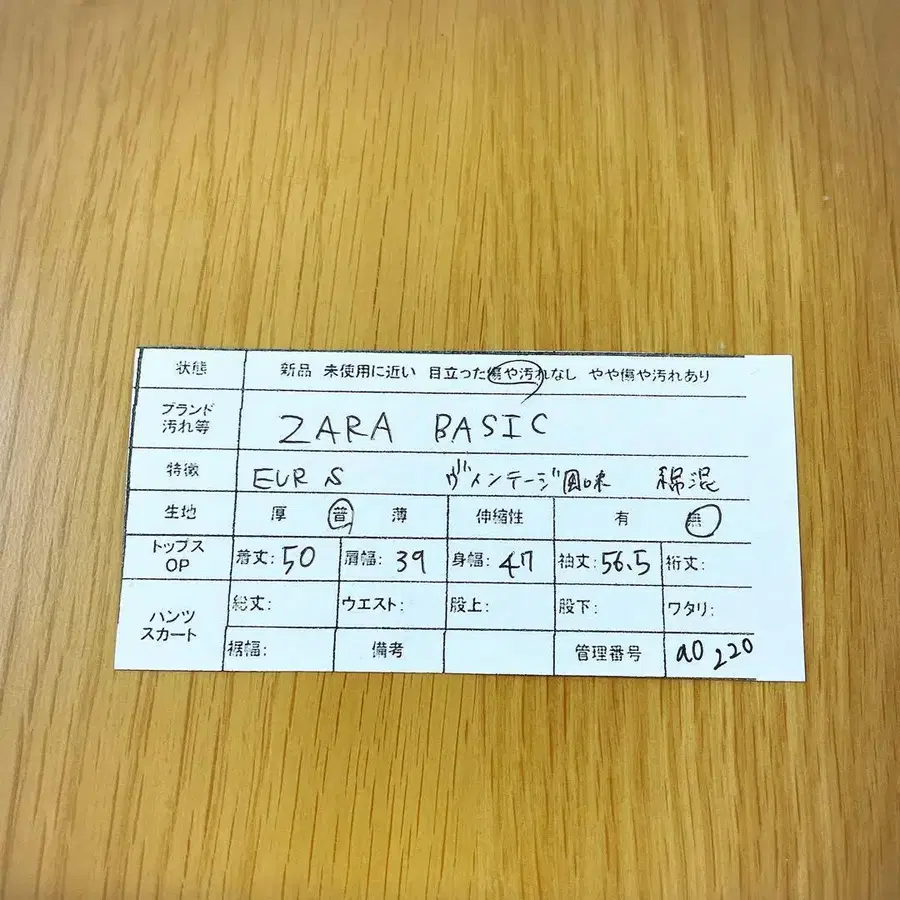 状態 新品 未使用に近い 目立った傷や汚れなし やや傷や汚れあり
ブランド 汚れ等 ZARA BASIC
特徴 EUR S ヴィンテージ風味 綿混
生地 厚 普 薄 伸縮性 有 無
トップス OP 着丈:50 肩幅:39 身幅:47 袖丈:56.5 裄丈:
パンツ スカート 総丈: ウエスト: 股上: 股下: ワタリ:
裾幅: 備考 管理番号 a0220